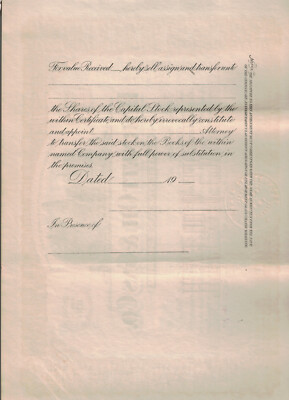 For value Received hereby sell, assign and transfer unto
the Shares of the Capital Stock represented by the
within Certificate and do hereby irrevocably constitute
and appoint Attorney
to transfer the said stock on the Books of the within-
named Company, with full power of substitution in
the premises.
Dated 19
In Presence of